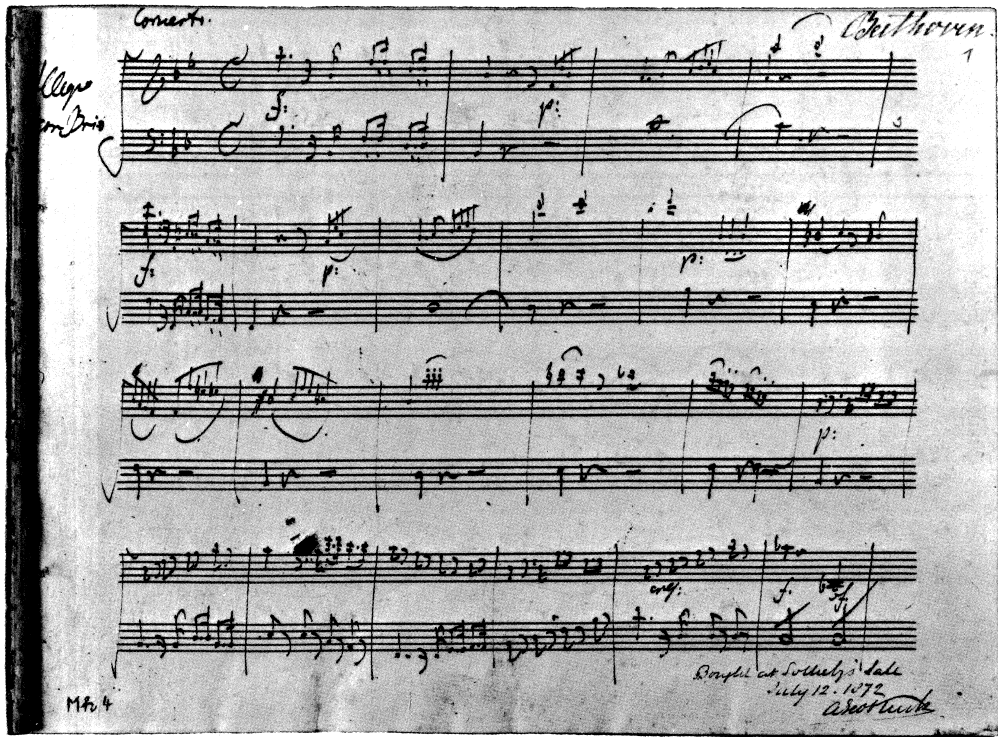 Concerto.
Beethoven.
1
Allegro
con Brio
f:
p:
f:
p:
p:
p:
f.
f.
Bought at Sotheby's Sale
July 12. 1872
Mh 4